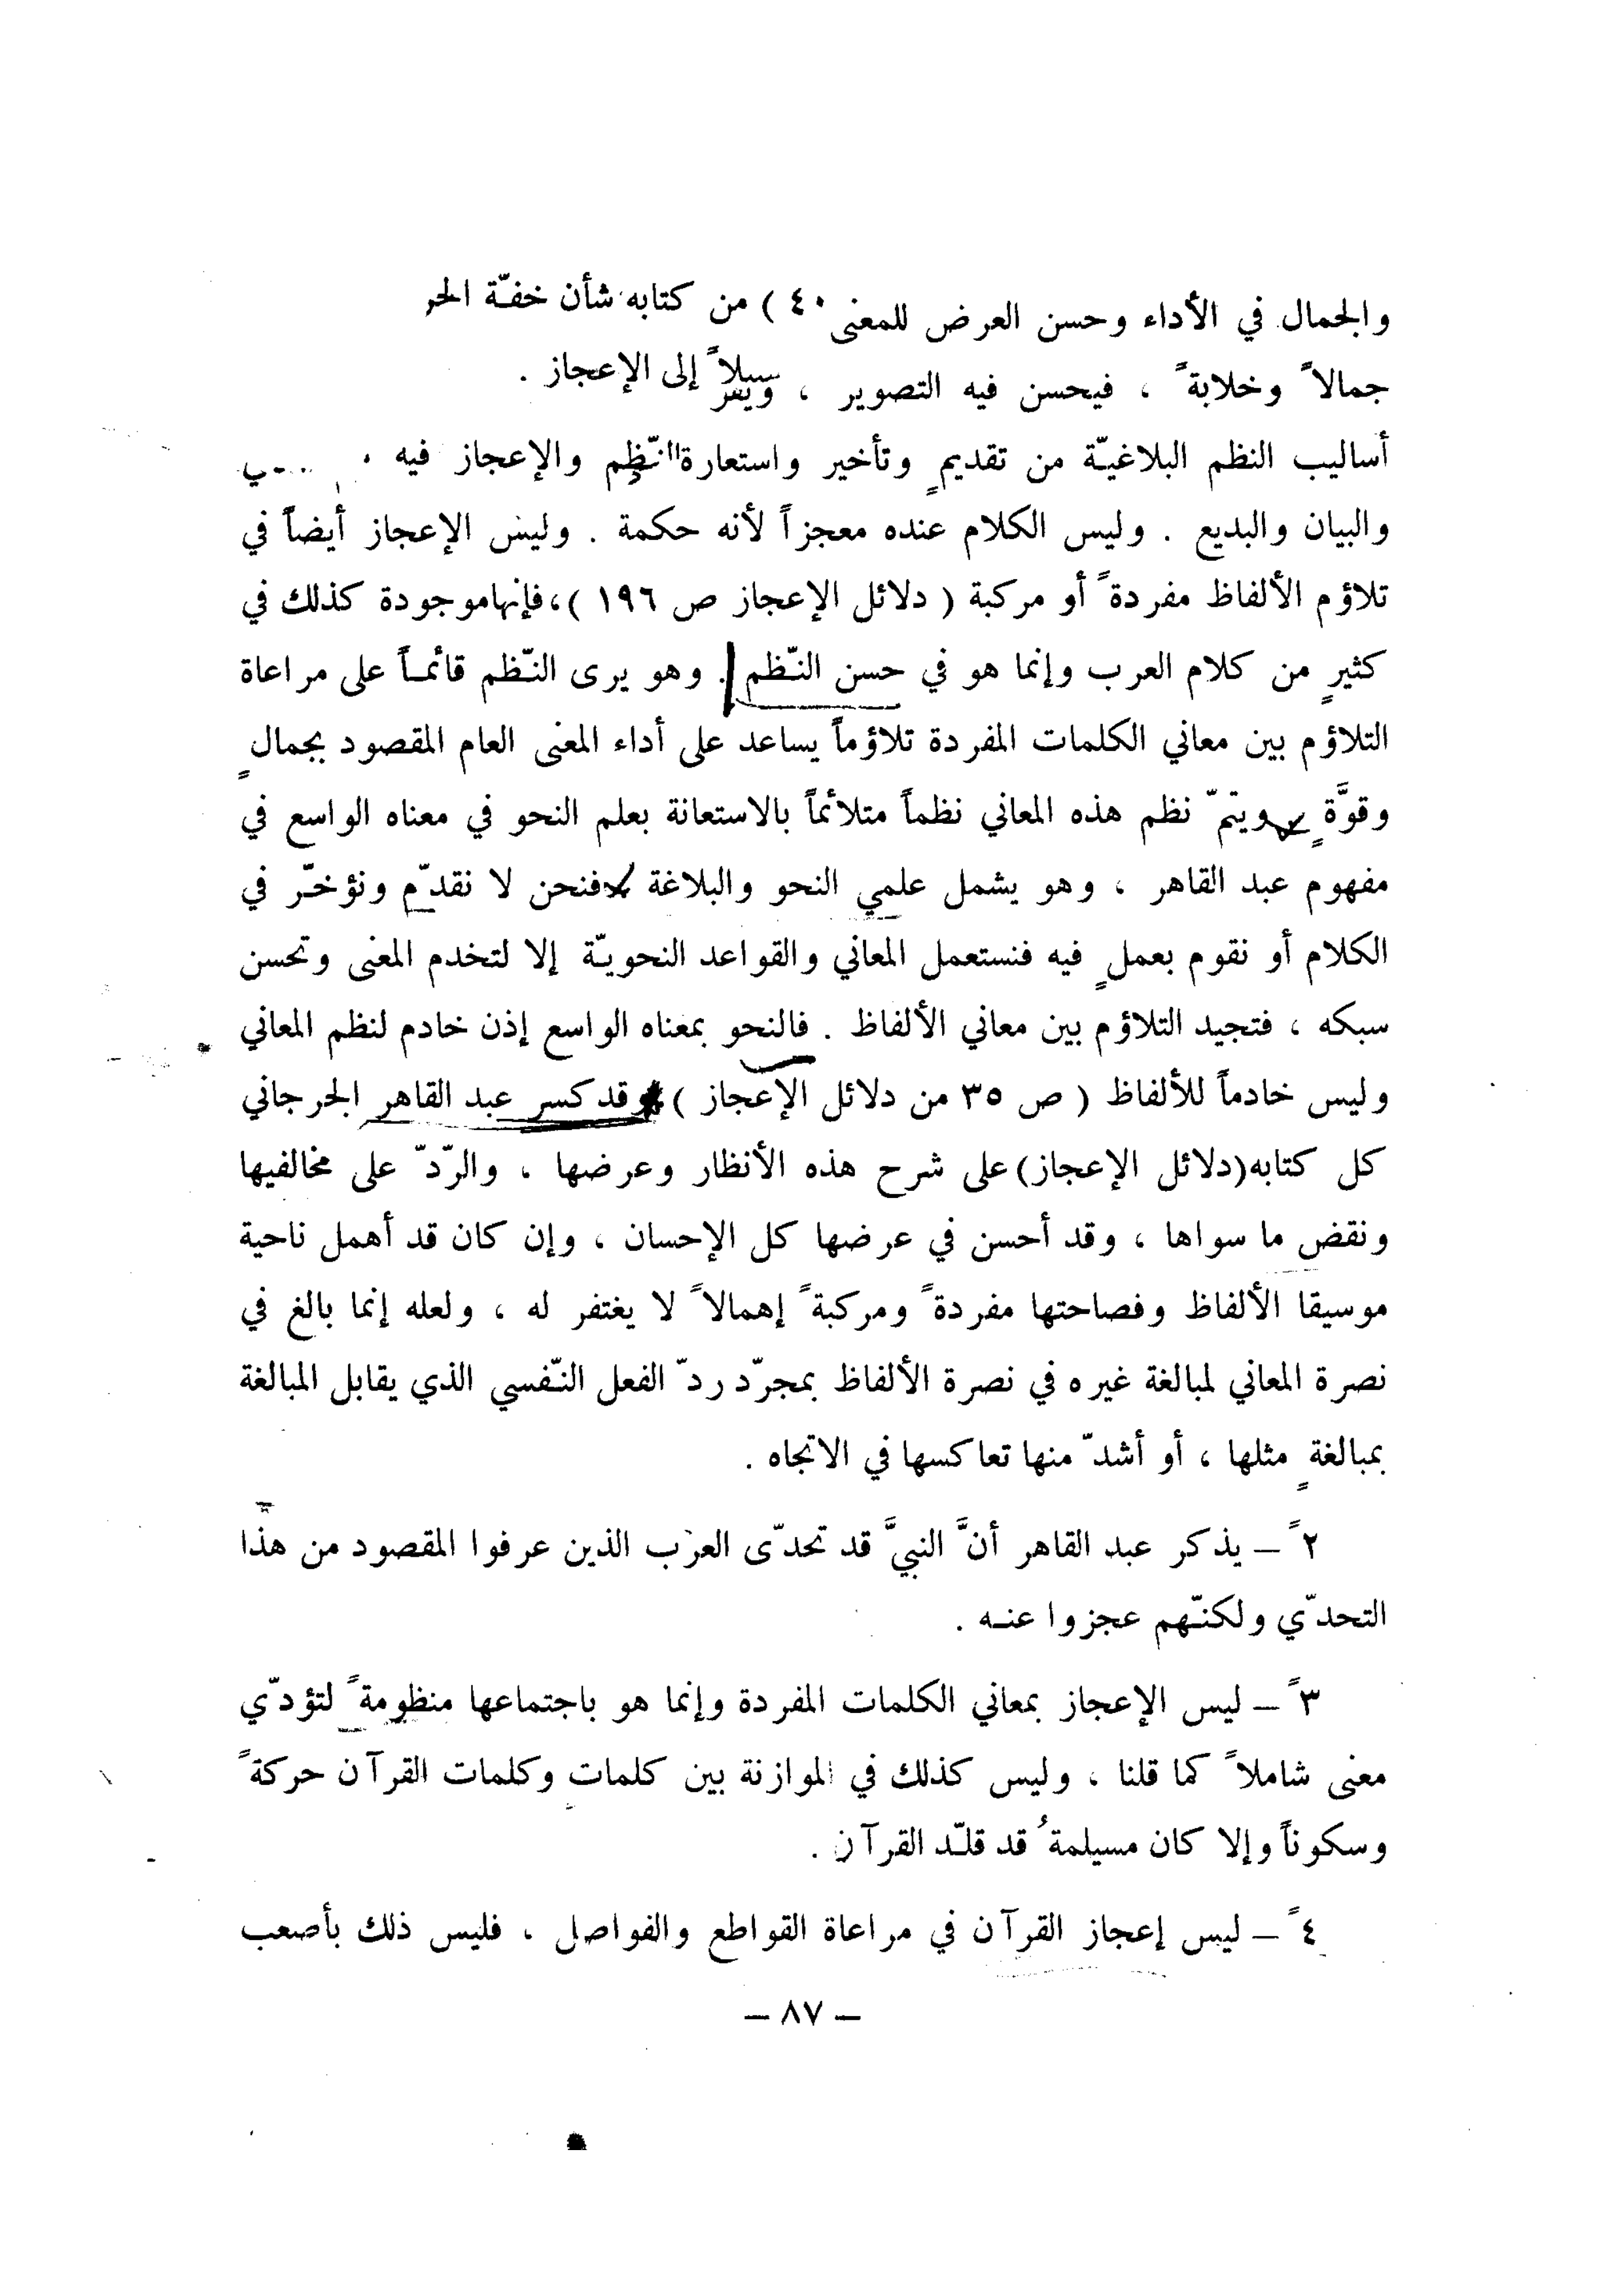 والجمال في الأداء وحسن العرض للمعنى ٤٠ ) من كتابه شأن خفّة الحر
جمالاً وخلابةً ، فيحسن فيه التصوير ، سبيلاً إلى الإعجاز .
أساليب النظم البلاغيّة من تقديمٍ وتأخير واستعارة النّظم والإعجاز فيه
والبيان والبديع . وليس الكلام عنده معجزاً لأنه حكمة . وليس الإعجاز أيضاً في
تلاؤم الألفاظ مفردةً أو مركبة ( دلائل الإعجاز ص ١٩٦ )، فإنها موجودة كذلك في
كثيرٍ من كلام العرب وإنما هو في حسن النّظم . وهو يرى النّظم قائماً على مراعاة
التلاؤم بين معاني الكلمات المفردة تلاؤماً يساعد على أداء المعنى العام المقصود بجمالٍ
وقوَّةٍ ويتمّ نظم هذه المعاني نظماً متلائماً بالاستعانة بعلم النحو في معناه الواسع في
مفهوم عبد القاهر ، وهو يشمل علمي النحو والبلاغة فنحن لا نقدّم ونؤخّر في
الكلام أو نقوم بعملٍ فيه فنستعمل المعاني والقواعد النحويّة إلا لتخدم المعنى وتحسن
سبكه ، فتجيد التلاؤم بين معاني الألفاظ . فالنحو بمعناه الواسع إذن خادم لنظم المعاني
وليس خادماً للألفاظ ( ص ٣٥ من دلائل الإعجاز ) وقد كسر عبد القاهر الجرجاني
كل كتابه (دلائل الإعجاز) على شرح هذه الأنظار وعرضها ، والرّدّ على مخالفيها
ونقض ما سواها ، وقد أحسن في عرضها كل الإحسان ، وإن كان قد أهمل ناحية
موسيقا الألفاظ وفصاحتها مفردةً ومركبةً إهمالاً لا يغتفر له ، ولعله إنما بالغ في
نصرة المعاني لمبالغة غيره في نصرة الألفاظ بمجرّد ردّ الفعل النّفسي الذي يقابل المبالغة
بمبالغةٍ مثلها ، أو أشدّ منها تعاكسها في الاتجاه .
٢ً – يذكر عبد القاهر أنَّ النبيَّ قد تحدّى العرب الذين عرفوا المقصود من هذا
التحدّي ولكنّهم عجزوا عنه .
٣ً – ليس الإعجاز بمعاني الكلمات المفردة وإنما هو باجتماعها منظومةً لتؤدّي
معنى شاملاً كما قلنا ، وليس كذلك في الموازنة بين كلمات وكلمات القرآن حركةً
وسكوناً وإلا كان مسيلمةُ قد قلّد القرآن .
٤ً – ليس إعجاز القرآن في مراعاة القواطع والفواصل ، فليس ذلك بأصعب
– ٨٧ –